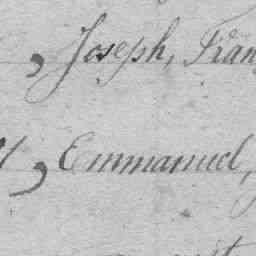 , Joseph, Fran
, Emmanuel,